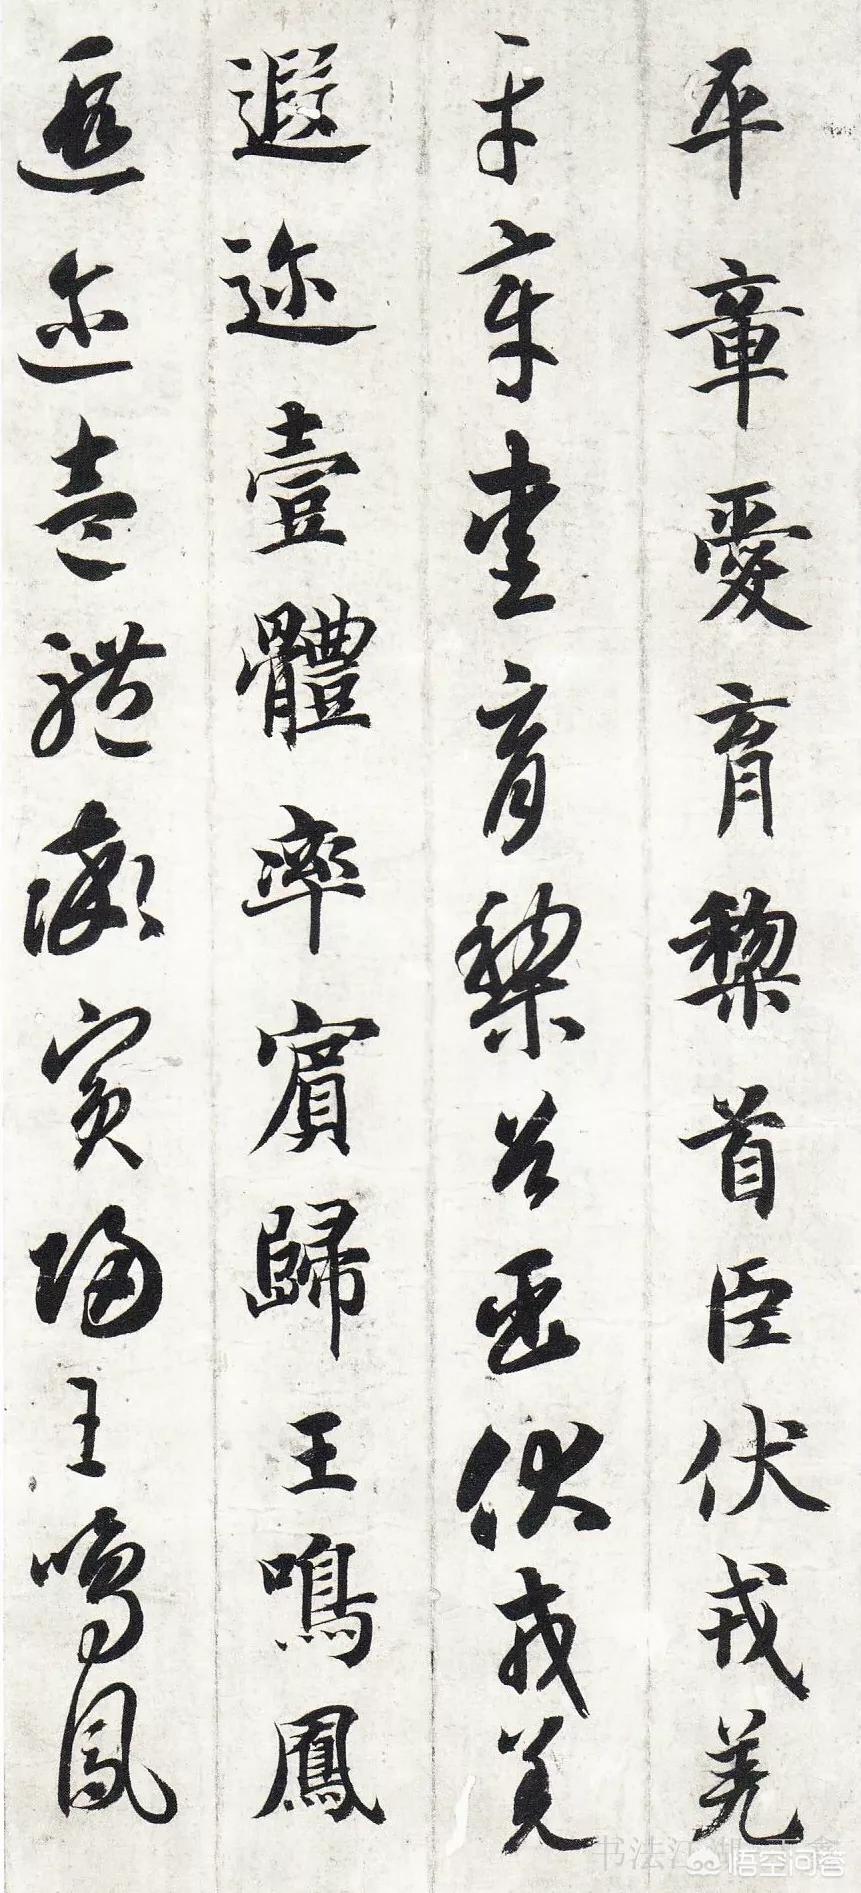 平章愛育黎首臣伏戎羌
平章愛育黎首臣伏戎羌
遐迩壹體率賓歸王鳴鳳
遐迩壹體率賓歸王鳴鳳
书法江
悟空问答